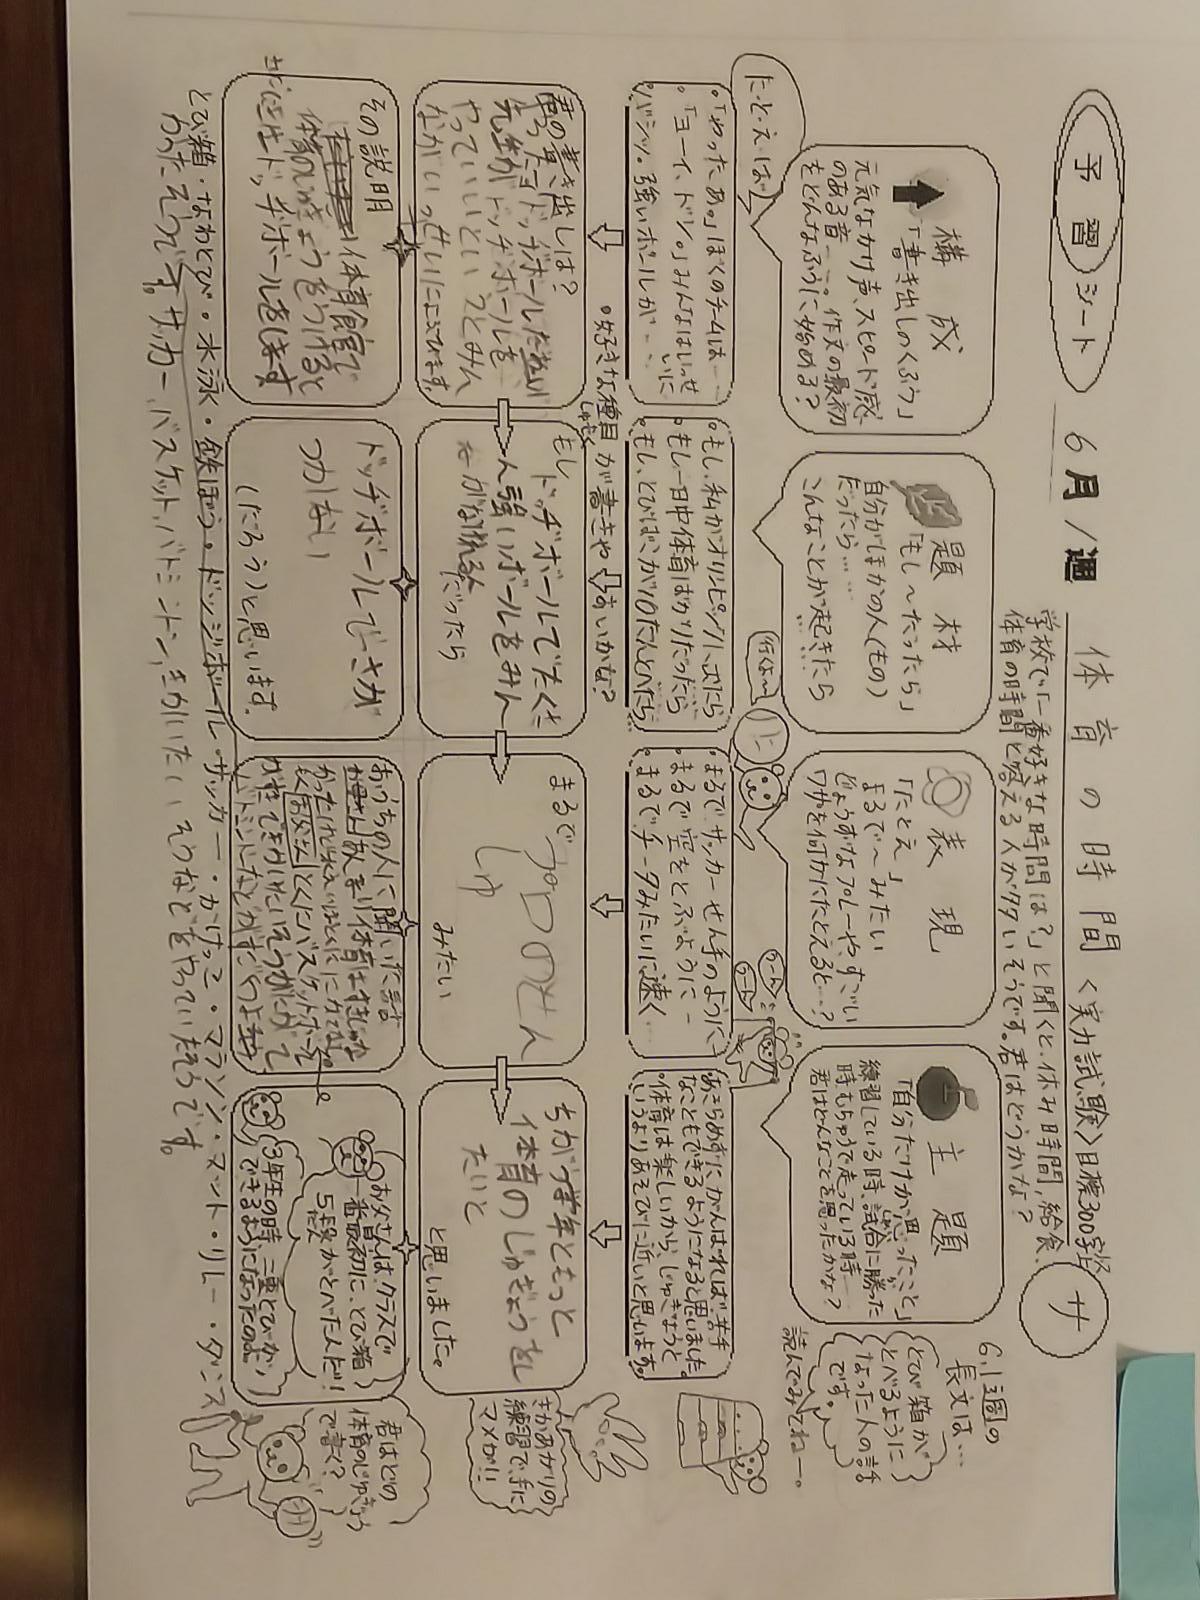 予習シート
6月1週
体育の時間
<実力試験>目標300字
サ
学校で「一番好きな時間は?」と聞くと、休み時間、給食、
体育の時間と答える人が多いそうです。君はどうかな?
6.1週の
長文は…
とび箱が
とべるように
なった人の話
です。
読んでみてねー。
構成
「書き出しのくふう」
元気なかけ声、スピード感
のある音……。作文の最初
をどんなふうに始める?
題材
「もし〜だったら」
自分がほかの人(もの)
だったら……
こんなことが起きたら
表現
「たとえ」
まるで〜みたい
じょうずなプレーや、すごい
ワザを何かにたとえると…?
主題
「自分だけが思ったこと」
練習している時、試合に勝った
時もちゅうで走っている時…
君はどんなことを思ったかな?
たとえば
行くよ〜
。「やったあ。」ぼくのチームは…
。「ヨーイ、ドン。」みんなはいっせいに
。バシッ。強いボールが…
。もし、私がオリンピックに出たら
。もし一日中体育ばかりだったら
。もし、とびばこが10だんとべたら
。まるでサッカーせん手のように
。まるで空をとぶように
。まるでチータみたいに速く…
。あきらめずにがんばれば苦手
なこともできるようになると思いました。
。体育は楽しいから、じゅぎょうと
いうよりあそびに近いと思います。
。好きな種目が書きやすいかな?
しゅもく
君の書き出しは?
先生がドッチボールを
やっていいというとみん
ながいっせいによろこびます
もし
ドッチボールでたくさ
ん強いボールをみん
だったら
まるで
プロのせん
しゅ
みたい
ちがう学年ともっと
体育のじゅぎょうをし
たいと
と思いました。
きかあがりの
練習で手に
マメが!!
その説明
体育館で
体育のじゅぎょうをうけると
きにはドッチボールをします
ドッチボールでさが
つかない
(だろう)と思います。
おうちの人に聞いた話
お母さんあんまり体育はすきじゃな
お父さんとくにバスケットボール
お父さんは、クラスで
一番最初に、とび箱
5だんがとべたんだ!
3年生の時、二重とびが
できるようになったのよ
君はどの
体育のじゅぎょう
で書く?
とび箱・なわとび・水泳・鉄ぼう・ドッジボール・サッカー・かけっこ・マラソン・マット・リレー・ダンス
かったそうです。サッカー、バスケット、バトミントン、きかいたいそうなどをやっていたそうです。